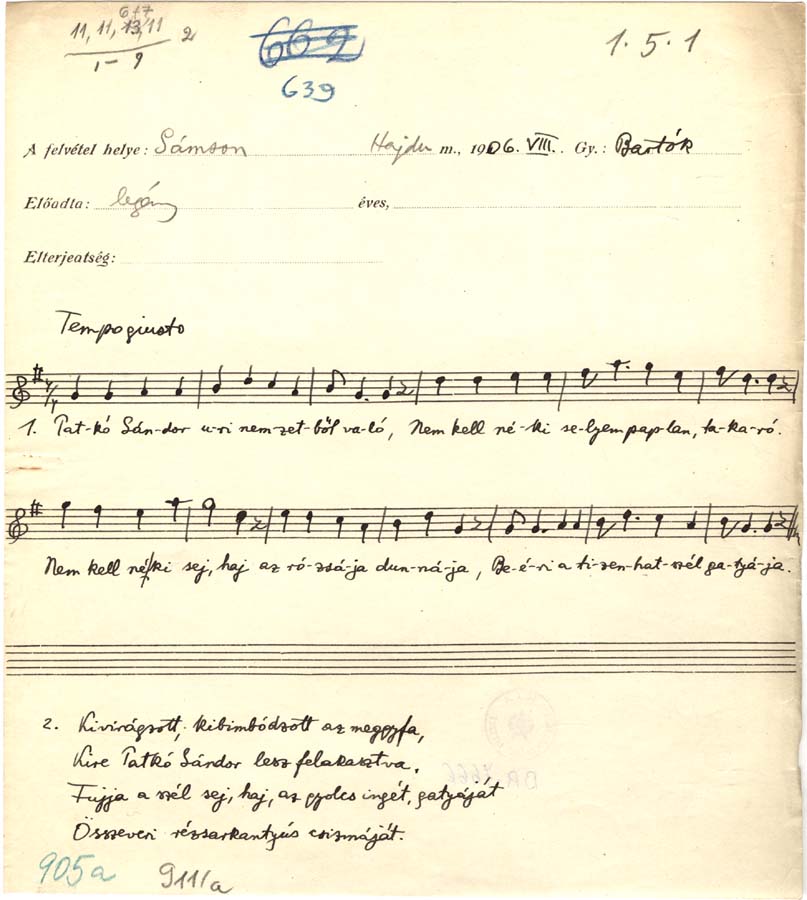 6+7
11, 11, 13, 11 2
1-9
662
639
1.5.1
A felvétel helye: Sámson Hajdu m., 1906. VIII. Gy.: Bartók
Előadta: legény éves,
Elterjedtség:
Tempo giusto
1. Pat-kó Sán-dor u-ri nem-zet-ből va-ló, Nem kell né-ki se-lyem pap-lan, ta-ka-ró.
Nem kell néki sej, haj az ró-zsá-ja dun-ná-ja, Be-é-ri a ti-zen-hat-szél ga-tyá-ja.
2. Kivirágzott, kibimbódzott az meggyfa,
Kire Patkó Sándor lesz felakasztva.
Fujja a szél sej, haj, az gyolcs ingét, gatyáját
Összeveri rézsarkantyús csizmáját.
905a 911/a